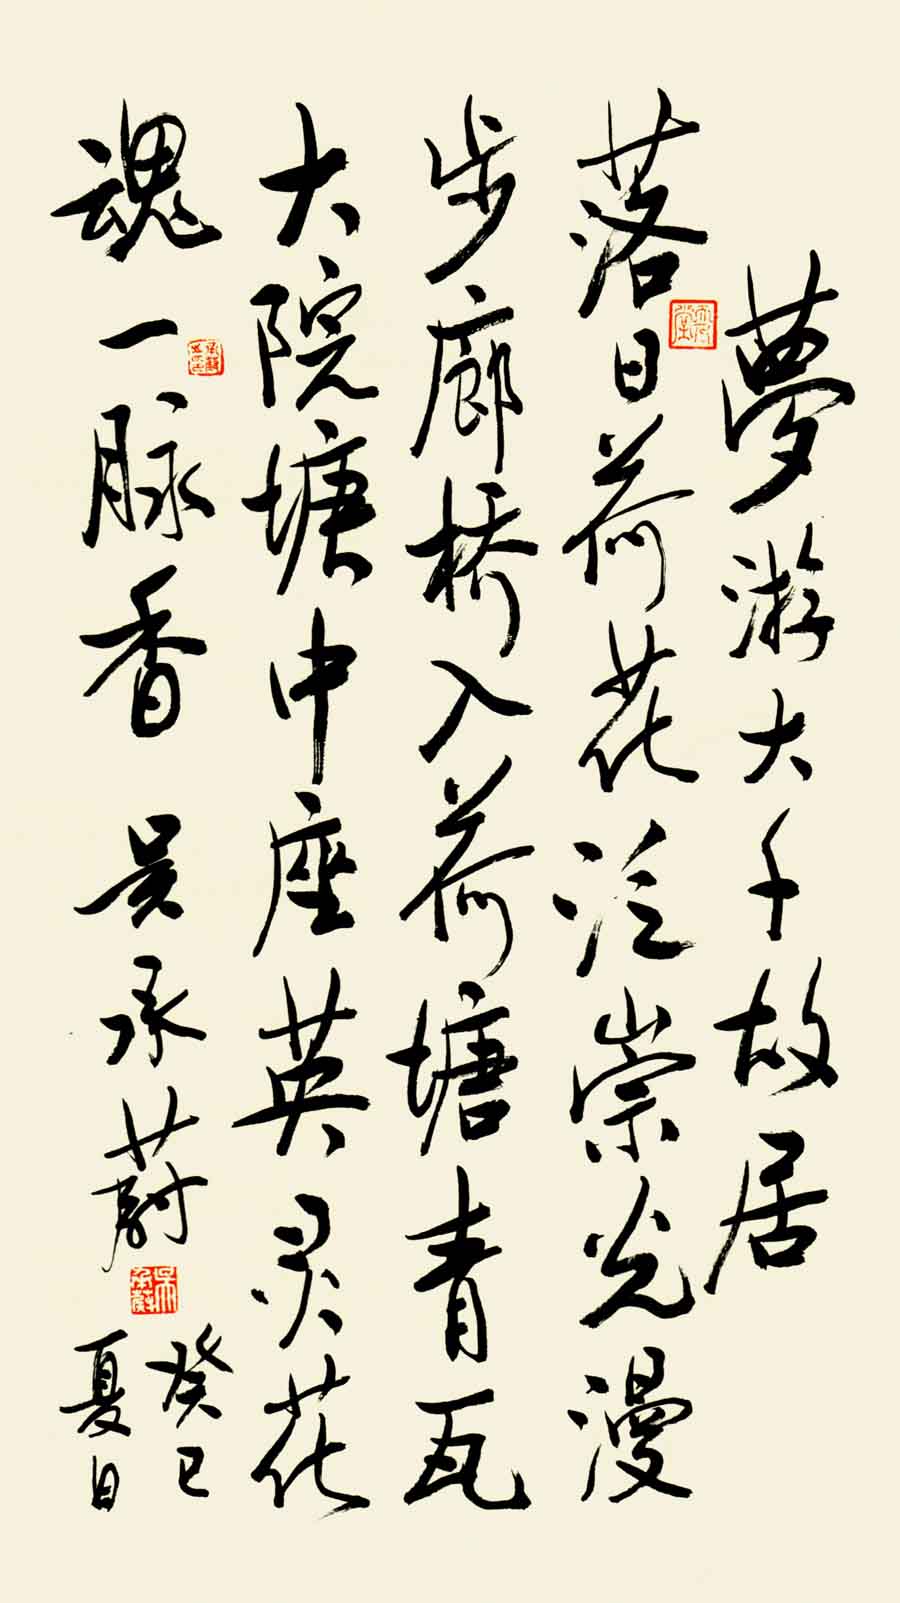 夢游大千故居
落日荷花泛崇光漫
步廊桥入荷塘青瓦
大院塘中座英灵花
魂一脉香
吴承蔚
癸巳
夏日
吴承蔚